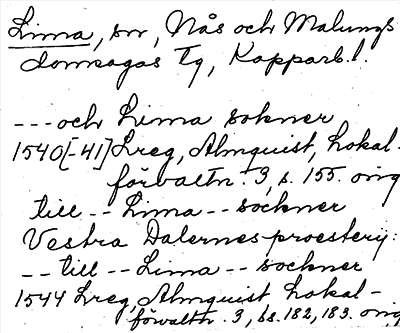 Lima, sn, Nås och Malungs
domsagas tg, Kopparb. l.
--- och Lima sokner
1540[-41] Lreg, Almquist, Lokal-
förvaltn. 3, s. 155. orig
till -- Lima -- sochner
Vestra Dalernes proestery:
-- till -- Lima -- sochner
1544 Lreg, Almquist Lokal-
förvaltn. 3, bs. 182, 183. orig